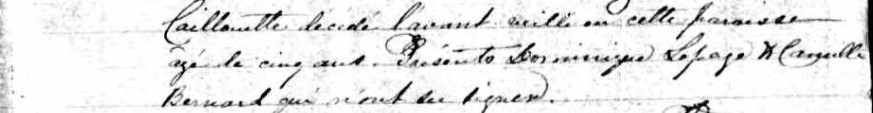 Caillouette décédé l'avant veille en cette paroisse
âgé de cinq ans. Présents Dominique Lepage & Camille
Bernard qui n'ont su signer.